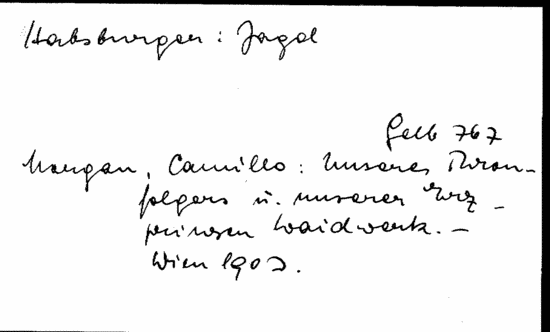 Habsburger: Jagd
Gelb 767
Morgan, Camillo: Unseres Thron-
folgers u. unserer Erz-
prinzen Waidwerk. -
Wien 190